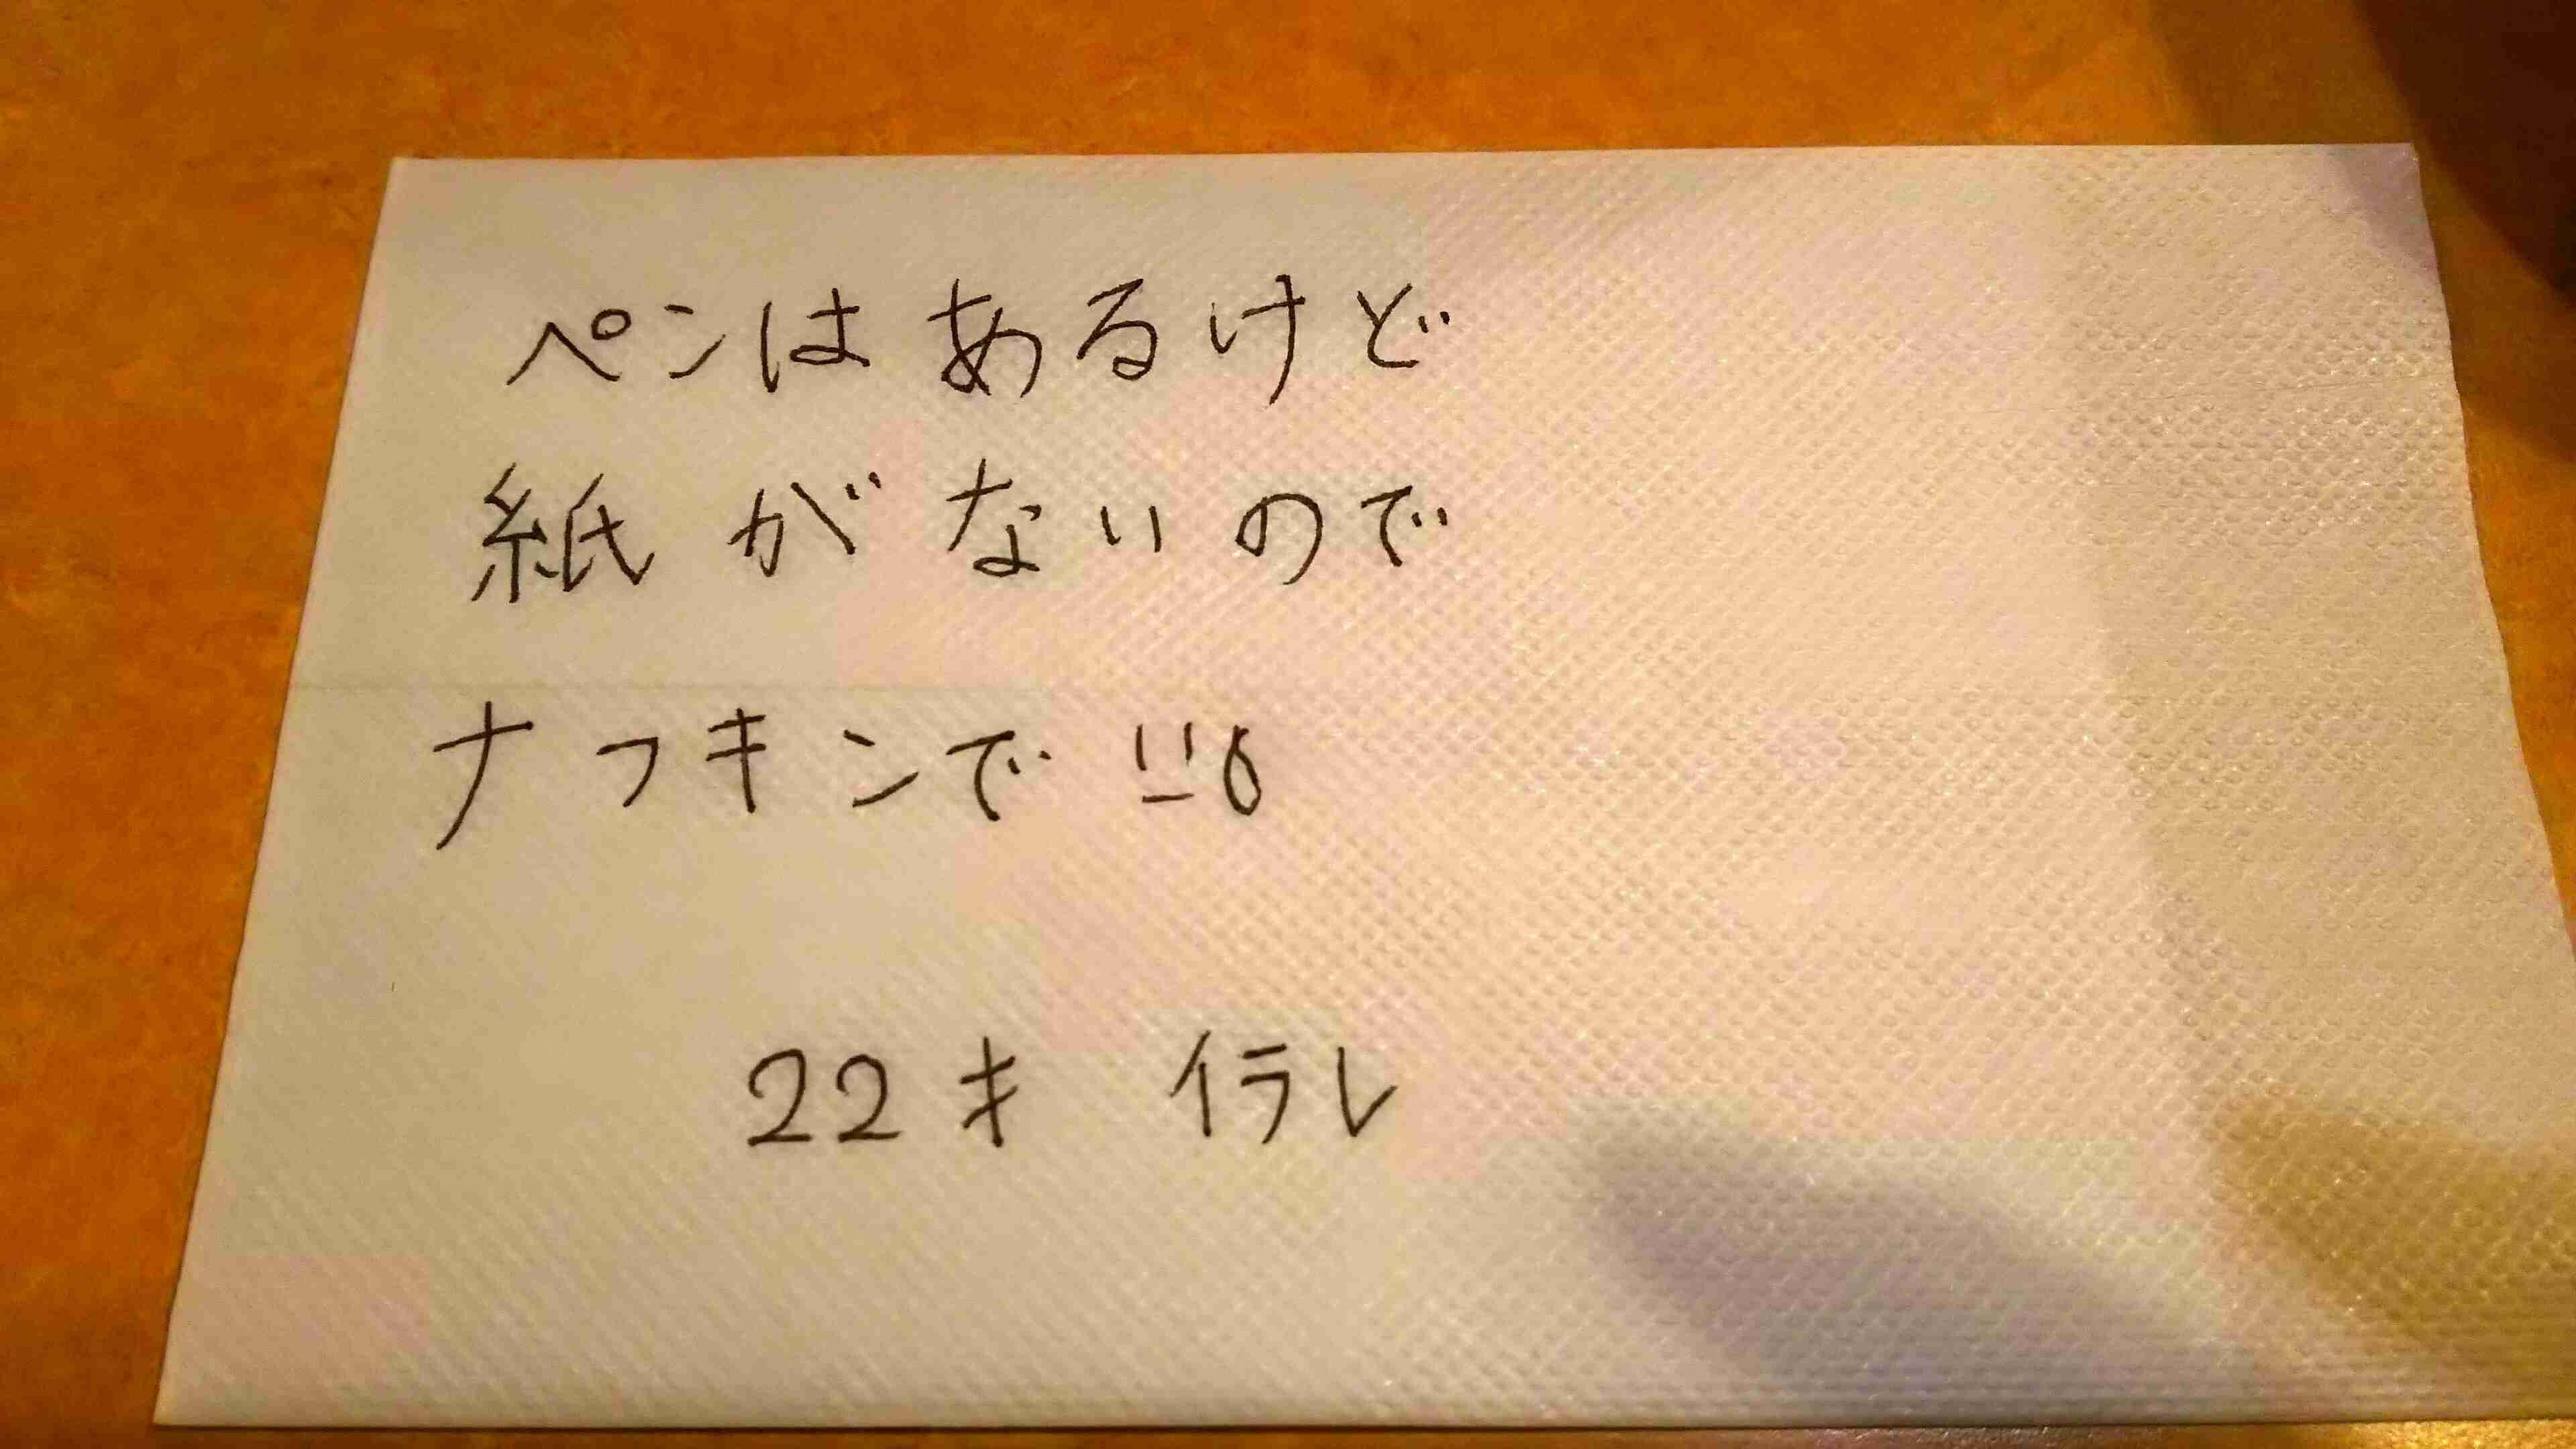 ペンはあるけど
紙がないので
ナフキンで
22キ イラレ